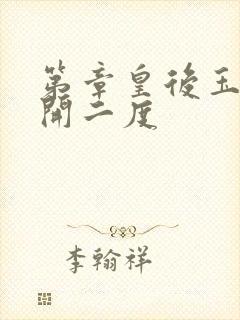 第章皇後玉
開二度
李翰祥